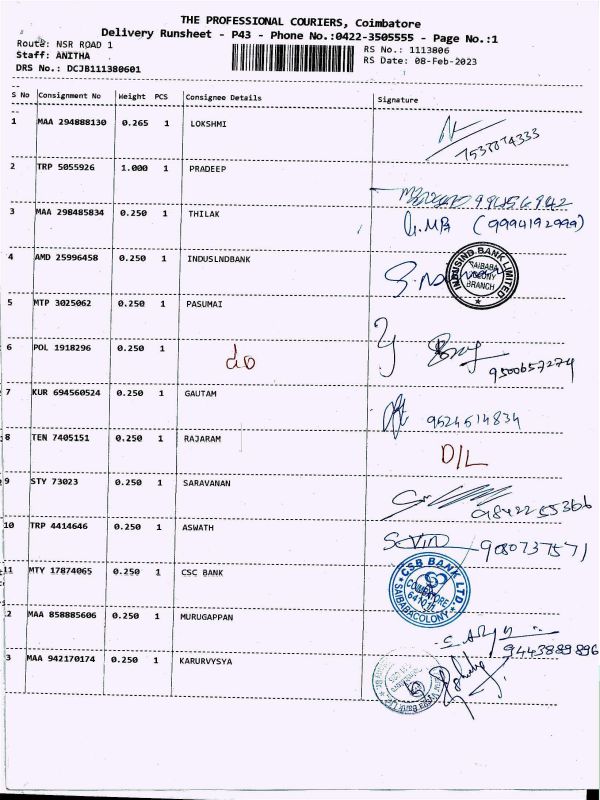 THE PROFESSIONAL COURIERS, Coimbatore
Delivery Runsheet - P43 - Phone No.:0422-3505555 - Page No.:1
Route: NSR ROAD 1
RS No.: 1113806
Staff: ANITHA
RS Date: 08-Feb-2023
DRS No.: DCJB111380601
S No Consignment No Weight PCS Consignee Details Signature
1 MAA 294888130 0.265 1 LOKSHMI
2 TRP 5055926 1.000 1 PRADEEP
3 MAA 298485834 0.250 1 THILAK (9994192999)
4 AMD 25996458 0.250 1 INDUSLNDBANK
INDUSIND BANK LIMITED
SAIBABA
COLONY
BRANCH
5 MTP 3025062 0.250 1 PASUMAI
6 POL 1918296 0.250 1 do 9500657274
7 KUR 694560524 0.250 1 GAUTAM 9524514834
8 TEN 7405151 0.250 1 RAJARAM D/L
9 STY 73023 0.250 1 SARAVANAN 9842255366
10 TRP 4414646 0.250 1 ASWATH 9080737571
11 MTY 17874065 0.250 1 CSC BANK
CSB BANK LTD
COIMBATORE
SAIBABACOLONY
2 MAA 858885606 0.250 1 MURUGAPPAN 9443889896
3 MAA 942170174 0.250 1 KARURVYSYA